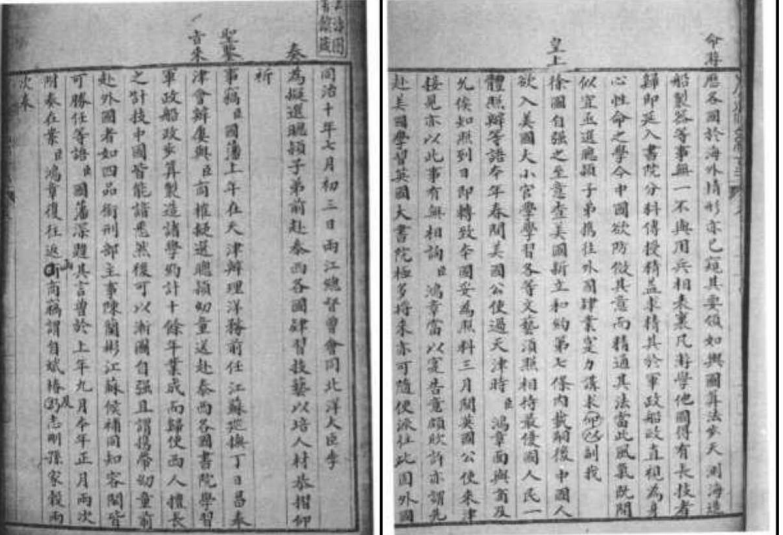 同治十年七月初三日兩江總督曾會同北洋大臣李
奏為擬選聰穎子弟前赴泰西各國肄習技藝以培人材恭摺仰
祈
聖鑒事竊臣國藩上年在天津辦理洋務前任江蘇巡撫丁日昌奉
旨來津會辦屢與臣商榷擬選聰穎幼童送赴泰西各國書院學習
軍政船政步算製造諸學約計十餘年業成而歸使西人擅長
之計技中國皆能諳悉然後可以漸圖自强且謂携帶幼童前
赴外國者如四品銜刑部主事陳蘭彬江蘇候補同知容閎皆
可勝任等語臣國藩深韙其言曾於上年九月本年正月兩次
附奏在案臣鴻章復往返函商竊謂自斌椿及志剛孫家穀兩
次奉
命游歷各國於海外情形亦已窺其要領如輿圖算法步天測海造
船製器等事無一不與用兵相表裏凡游學他國得有長技者
歸即延入書院分科傳授精益求精其於軍政船政直視為身
心性命之學今中國欲倣其意而精通其法當此風氣既開
似宜亟選聰穎子弟携往外國肄業實力講求以仰副我
皇上徐圖自强之至意查美國新立和約第七條內載嗣後中國人
欲入美國大小官學學習各等文藝須照相待最優國人民一
體照辦等語本年春間美國公使過天津時臣鴻章面與商及
允俟知照到日即轉致本國妥為照料三月間英國公使來津
接見亦以此事有無相詢臣鴻章當以實告意頗欣許亦謂先
赴美國學習英國大書院極多將來亦可隨便派往此固外國